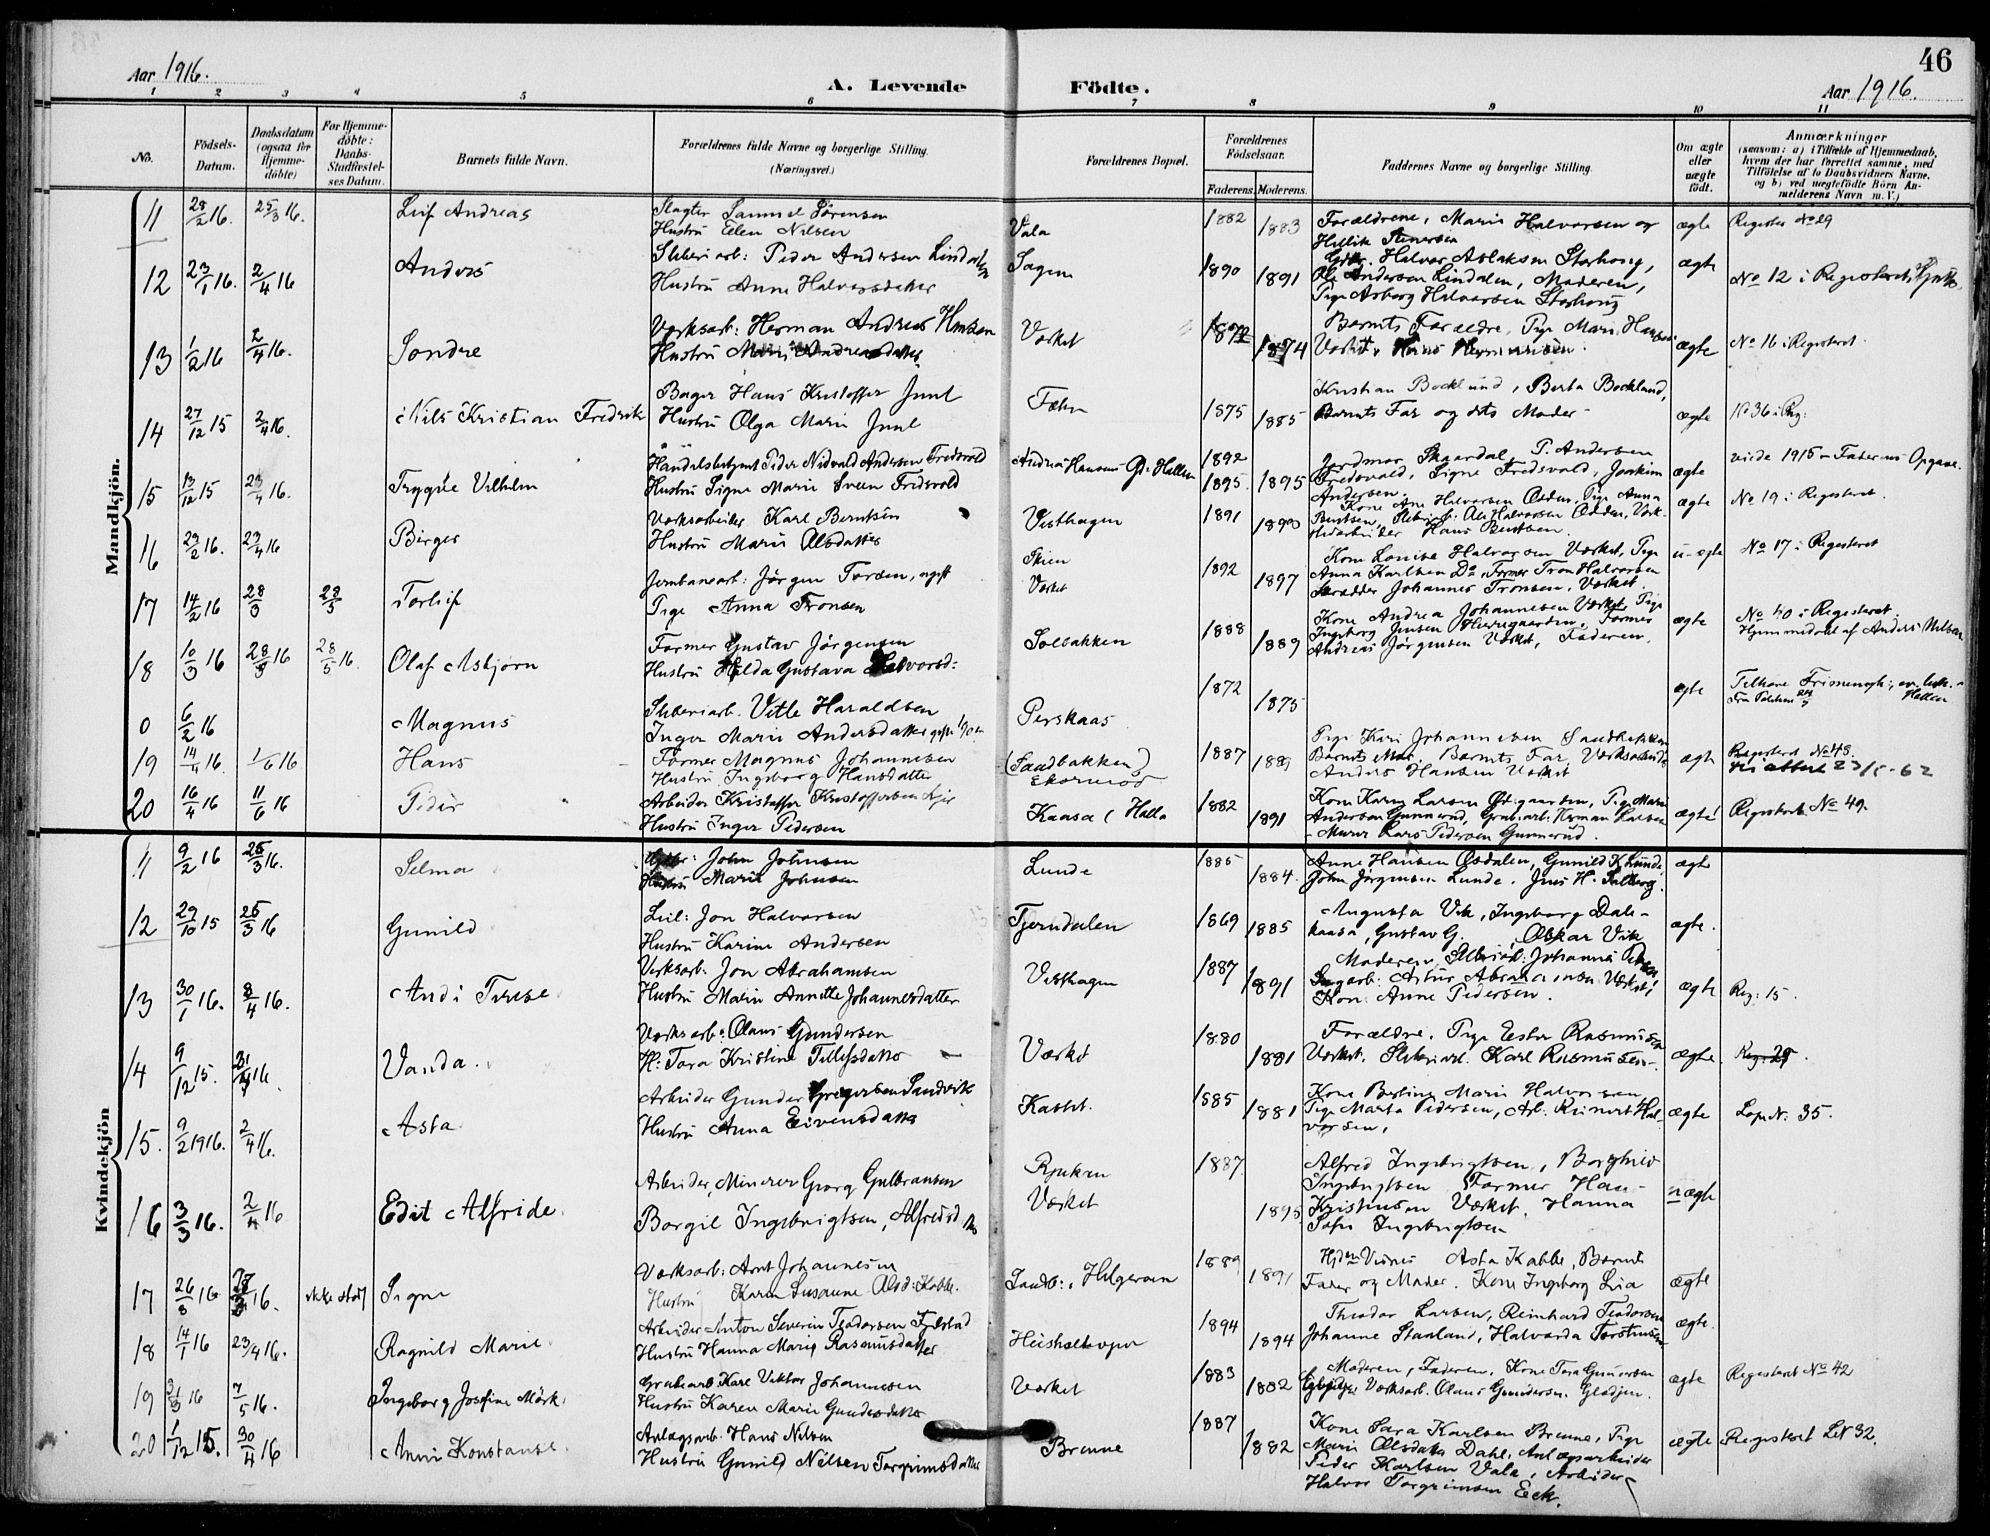 46
Aar 1916.
A. Levende
Födte.
Aar 1916.
1 2 3 4 5 6 7 8 9 10 11
No.
Födsels-Datum.
Daabsdatum (ogsaa for Hjemme-döbte)
For Hjemme-döbte: Daabs-Stadfæstel-ses Datum.
Barnets fulde Navn.
Forældrenes fulde Navne og borgerlige Stilling. (Næringsvei.)
Forældrenes Bopæl.
Forældrenes Födselsaar.
Faderens. Moderens.
Faddernes Navne og borgerlige Stilling.
Om ægte eller uægte födt.
Anmærkninger (saasom: a) i Tilfælde af Hjemmedaab, hvem der har forrettet samme, med Tilföielse af to Daabsvidners Navne. og b) ved uægtefödte Börn An-melderens Navn m. V.)
Mandkjön.
11 28/2 16. 25/3 16. Leif Andreas
Slagter Samuel Sörensen
Hustru Elen Nilsen
Vala 1882 1883
Forældrene, Marie Halvorsen og
ægte Register No 29
12 23/1 16. 2/4 16 Anders
Sliberiarb: Peder Andersen Lindalen
Hustru Anne Halvorsdatter
Sagen 1890 1891
Halvor Aslaksen Storhaug,
Ole Andersen Lindalen, Moderen,
Pige Asborg Halvorsen Storhaug
ægte No 12 i Registeret
13 1/2 16 2/4 16. Sondre
Værksarb: Herman Andreas Hansen
Hustru Marie Andreasdatter
Værket 1872 1874
Barnets Forældre, Pige Marie Hansen
Værket, Hans Hermansen
ægte No 16 i Registeret
14 27/12 15 2/4 16. Nils Kristian Fredrik
Bager Hans Kristoffer Juul
Hustru Olga Marie Juul
Fæhn 1875 1885
Kristian Bocklund, Berta Bockland,
Barnets Far og dets Moder
ægte No 36 i Reg:
15 13/12 15 23/4 16. Trygve Vilhelm
Handelsbetjent Peder Nidvald Andersen Fredsvold
Hustru Signe Marie Sveen Fredsvold
Andreas Hansens Gd: Hellen 1892 1895 1895
Skaardal, P. Andersen
Fredsvald, Signe Fredsvald, Joakim
Andersen.
ægte
16 29/2 16. 23/4 16 Birger
Værksarbeider Karl Berntsen
Hustru Marie Olsdatter
Vesthagen 1891 1890
Kone Ane Halvorsen Osden, Pige Anna
Berntsen, Ole Halvorsen Osden, Værk-
stedarbeider Hans Berntsen.
ægte No 19 i Registeret.
17 14/2 16 28/ 28/5 Torleif
Jernbanearb: Jörgen Torsen, ugift
Pige Anna Tronsen
Skien
Værket 1892 1897
Kone Lovise Halvorsen Værket, Pige
Anna Karlsen Do, Former Tron Halvorsen
Skrædder Johannes Tronsen, Værket.
u-ægte No 17 i Registeret
18 10/3 16 28/5 16 28/5 16. Olaf Asbjörn
Former Gustav Jörgensen
Hustru Helda Gustava Halvorsd:
Solbakken 1888 1889
Kone Andrea Johannesen Værket, Pige
Ingeborg Jensen Herregaarden, Former
Andreas Jörgensen Værket, Faderen,
ægte No 40 i Registeret.
Hjemmedöbt af Anders Nilsen
0 6/2 16 Magnus
Sliberiarb. Vetle Haraldsen
Inger Marie Andersdatter
Perskaas 1872 1875
ægte
19 14/4 16. 1/6 16 Hans
Former Magnus Johannesen
Hustru Ingeborg Hansdatter
(Sandbakken) 1887 1889
Pige Kari Johannesen Sandbakken
Barnets Mor, Barnets Far, Værksarbeider
Anders Hansen Værket
ægte Registeret No 48.
attest 23/5-62
20 16/4 16 11/6 16 Peder
Arbeider Kristoffer Kristoffersen
Hustru Inger Pedersen
Kaasa (Holla 1882 1891
Kone Karen Larsen, Pige Marie
Andersen Gunnerud, Grubearb: Herman Larsen
Murer Lars Pedersen Gunnerud.
ægte Registeret No 49.
Kvindekjön
11 9/2 16 26/3 16. Selma
John Johnsen
Hustru Marie Johnsen
Lunde 1885 1884.
Anne Hansen Osdalen, Gunild K Lunde
John Jörgensen Lunde, Jens H.
ægte
12 29/10 15 26/3 16 Gunild
Leil: Jon Halvorsen
Hustru Karine Andersen
Tjerndalen 1869 1885
Augusta Vik, Ingeborg Dale-
kaasa, Gustav G. Oskar Vik
ægte.
13 30/1 16. 8/4 16. Andi Terese
Verksarb. Jon Abrahamsen
Hustru Marie Annette Johannesdatter
Vesthagen 1887 1891
Moderen, Johannes
Artur Abrahamsen Værket,
Kone Anne Pedersen.
ægte Reg: 15.
14 9/12 15. 24/4 16. Vanda.
Værksarb: Olaus Gundersen
H: Tara Kristine Tellefsdatter
Værket 1880 1881
Forældre, Pige Ester Rasmussen
Værket. Sliberiarb. Karl Rasmussen.
ægte Reg: 28.
15. 9/2 1916. 2/4 16. Asta
Arbeider Gunder Gregersen Sandvik
Hustru Anna Eivensdatter
Kastet. 1885 1881
Kone Berline Marie Halvorsen
Pige Marta Pedersen, Arb. Reinert Hal-
vorsen,
ægte Lop.Nr. 35.
16 3/3 16. 2/4 16 Edit Alfride.
Arbeider, Minerer Georg Gulbransen
Borgil Ingebrigtsen, Alfredsd
Rjukan
Værket 1887 1895
Alfred Ingebrigtsen, Borghild
Ingebrigtsen Former Hans
Kristiansen Værket. Hanna
Sofie Ingebrigtsen
uægte
17 26/ 16 ikke stadf Signe
Værksarb: Arnt Johannesen
Hustru Karen Susanne Olsd: Kabbe.
Sandb:, Helgeroen 1889 1891
Asta Kabbe, Barnets
Fader og Moder. Kone Ingeborg Lia
ægte
18 14/1 16 23/4 16. Ragnild Marie
Arbeider Anton Severin Teodorsen
Hustru Hanna Marie Rasmusdatter
1894 1894
Theodor Larsen, Reinhard Teodorsen
Johanne Staaland, Halvarda Torstensen
ægte.
19 16 7/5 16. Ingeborg Josefine Mörk.
Grubearb Karl Viktor Johannesen
Hustru Karen Marie Gundersdatter
Værket 1883 1882
Moderen, Faderen, Kone Tora Gundersen
Værksarb. Olaus Gundersen. Glödjen.
ægte Registeret No 42
20 1/12 15. 30/4 16 Anni Konstanse.
Anlægsarb. Hans Nilsen
Hustru Gunild Nilsen Torgrimsdatter
Brenne 1887 1882
Kone Sara Karlsen Brenne, Pige
Marie Olsdatter Dahl, Anlægsarbeider
Peder Karlsen Vala, Arbeider
Halvor Torgrimsen Eek.
ægte Registeret LN 32.